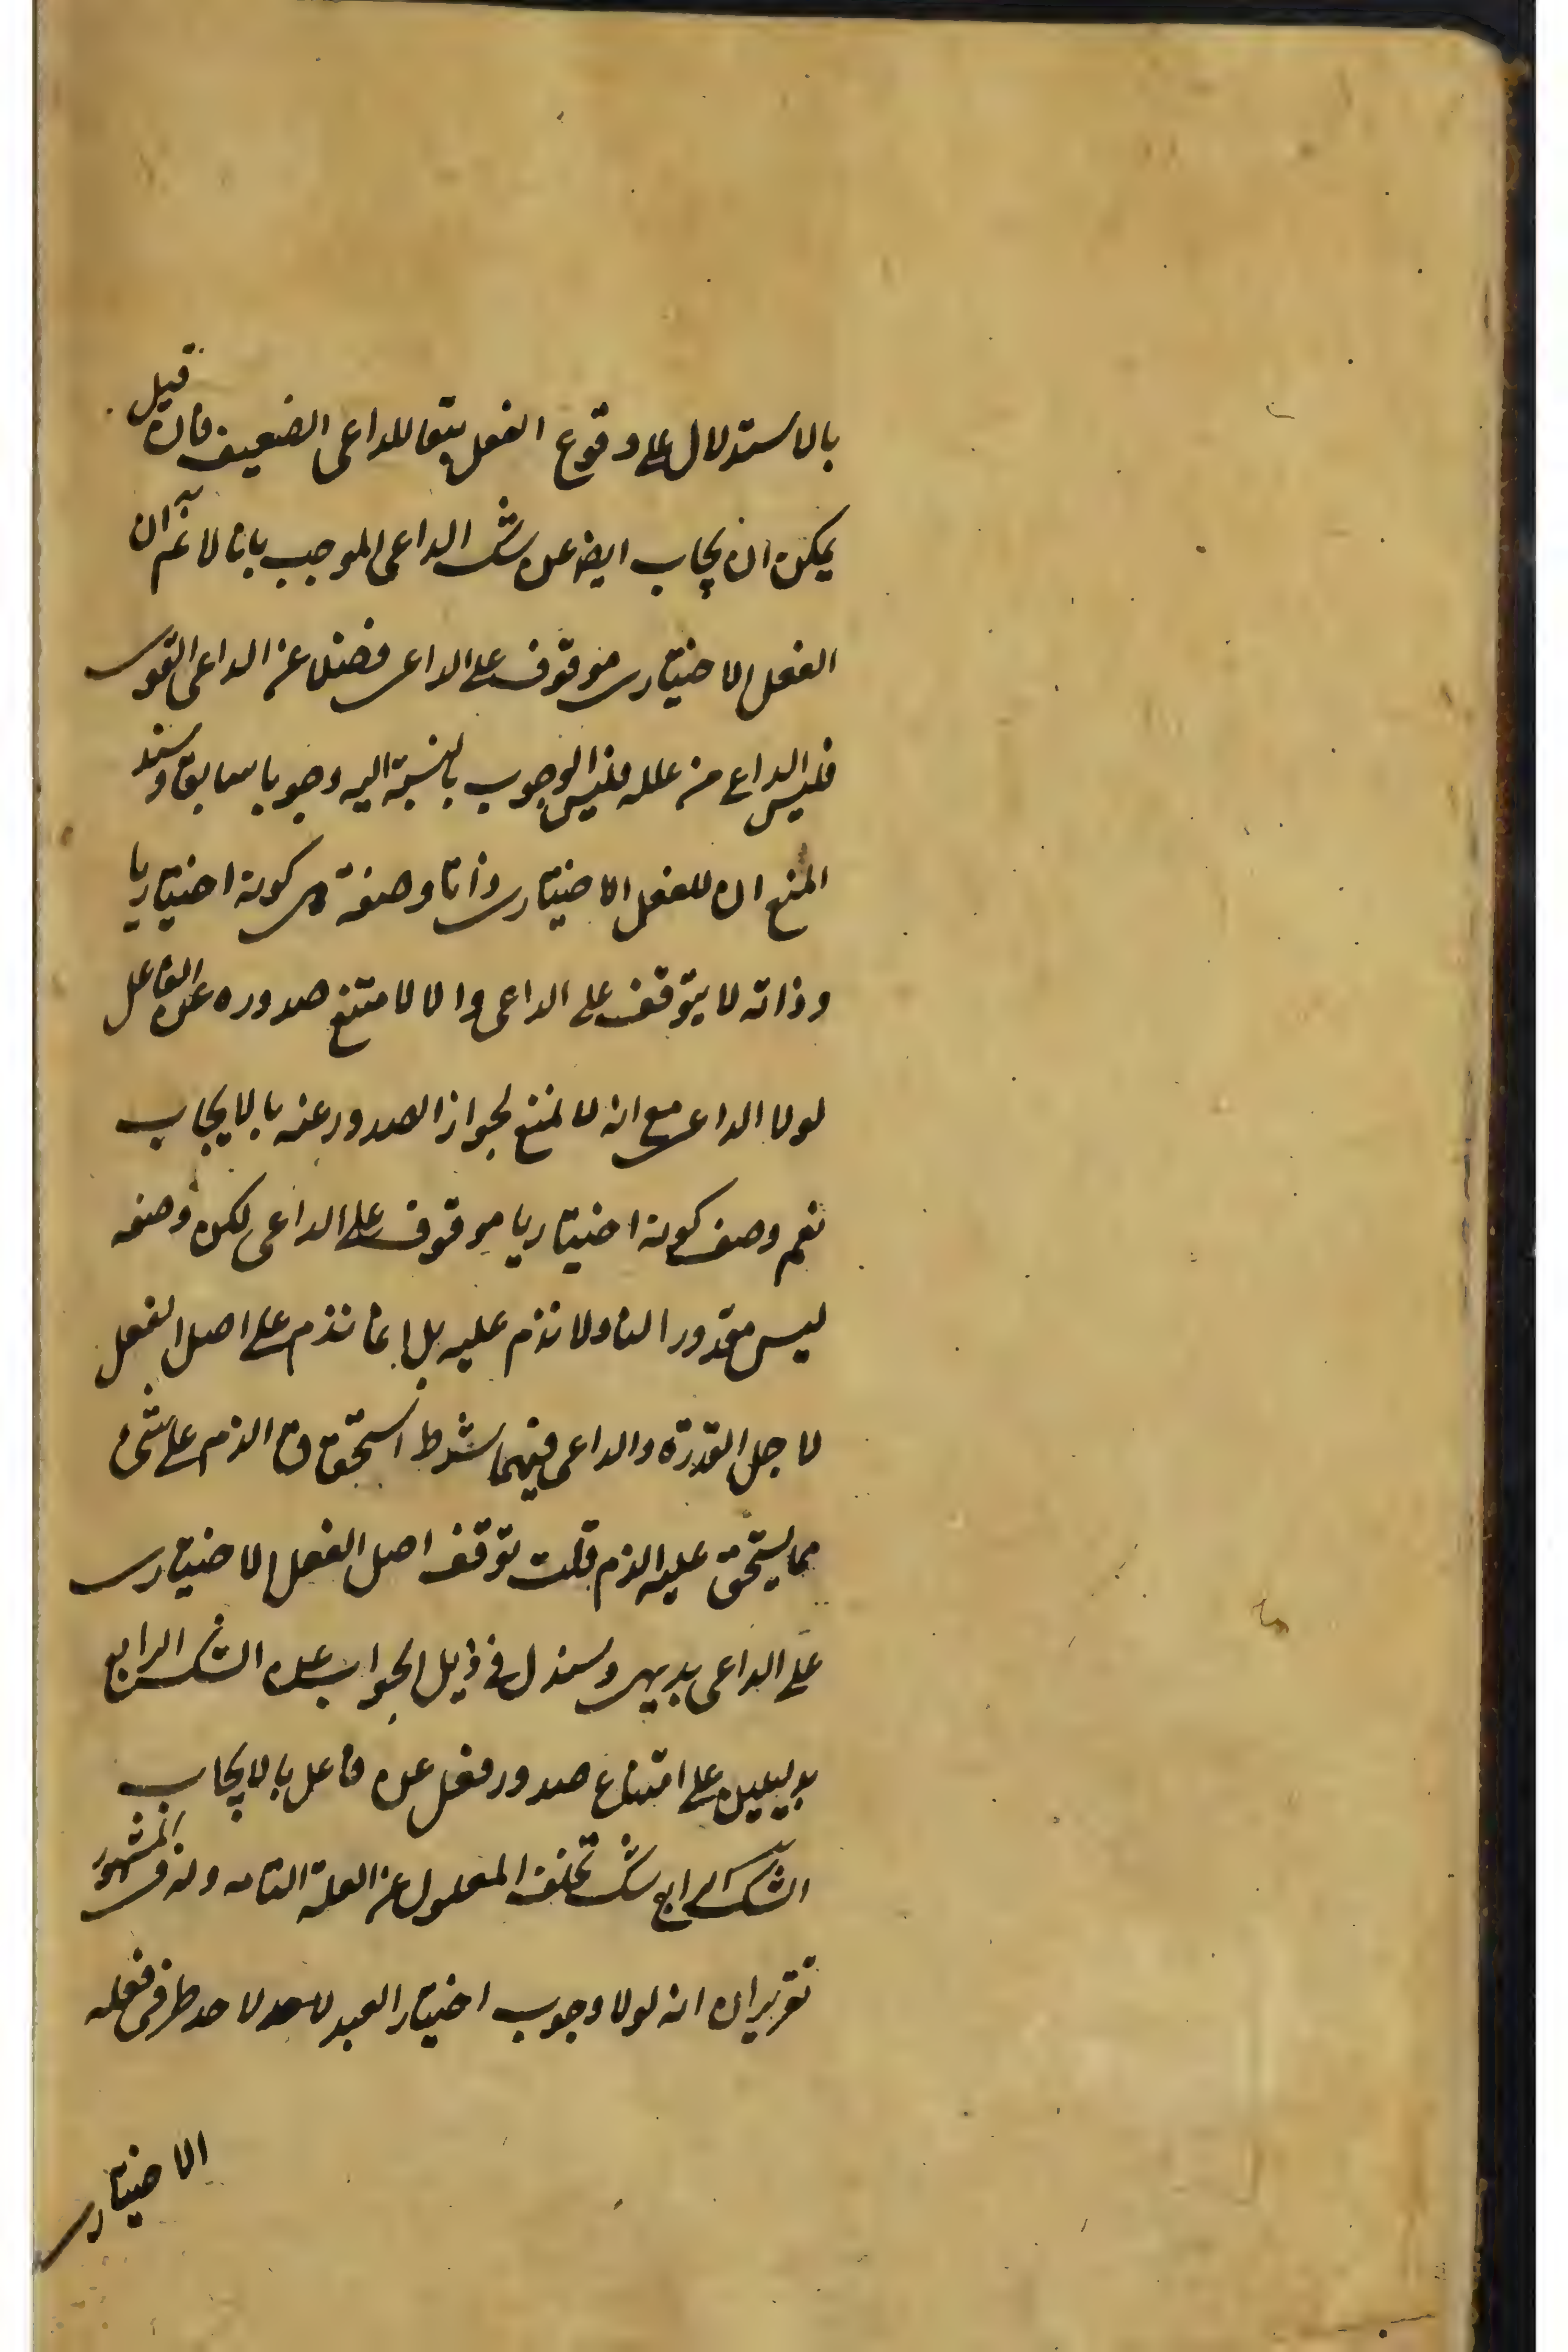 بالاستدلال على وقوع الفعل تبعا للداعى الضعيف فان قيل
يمكن ان يجاب ايضا عن شك الداعى الموجب بانا لا نم ان
الفعل الاختيارى موقوف على الداعى فضلا عن الداعى القوى
فليس الداعى من علله فليس الوجوب بالنسبة اليه وجوبا سابقا وسند
المنع ان للفعل الاختيارى ذاتا وصفة هى كونه اختياريا
وذاته لا يتوقف على الداعى والا لامتنع صدوره عن الفاعل
لولا الداعى مع انه لا يمتنع لجواز الصدور عنه بالايجاب
نعم وصف كونه اختياريا موقوف على الداعى لكن وصفه
ليس مقدورا لنا ولا نذم عليه بل انما نذم على اصل الفعل
لاجل القدرة والداعى فهما شرط استحقاق الذم على شىء
مما يستحق عليه الذم قلت توقف اصل الفعل الاختيارى
على الداعى بديهى وسندل فى ذيل الجواب عن الشك الرابع
بدليلين على امتناع صدور فعل عن فاعل بالايجاب
الشك الرابع شك تخلف المعلول عن العلة التامة وله فى المشهور
تقريران انه لولا وجوب اختيار العبد لاحد طرفى فعله
الاختيارى